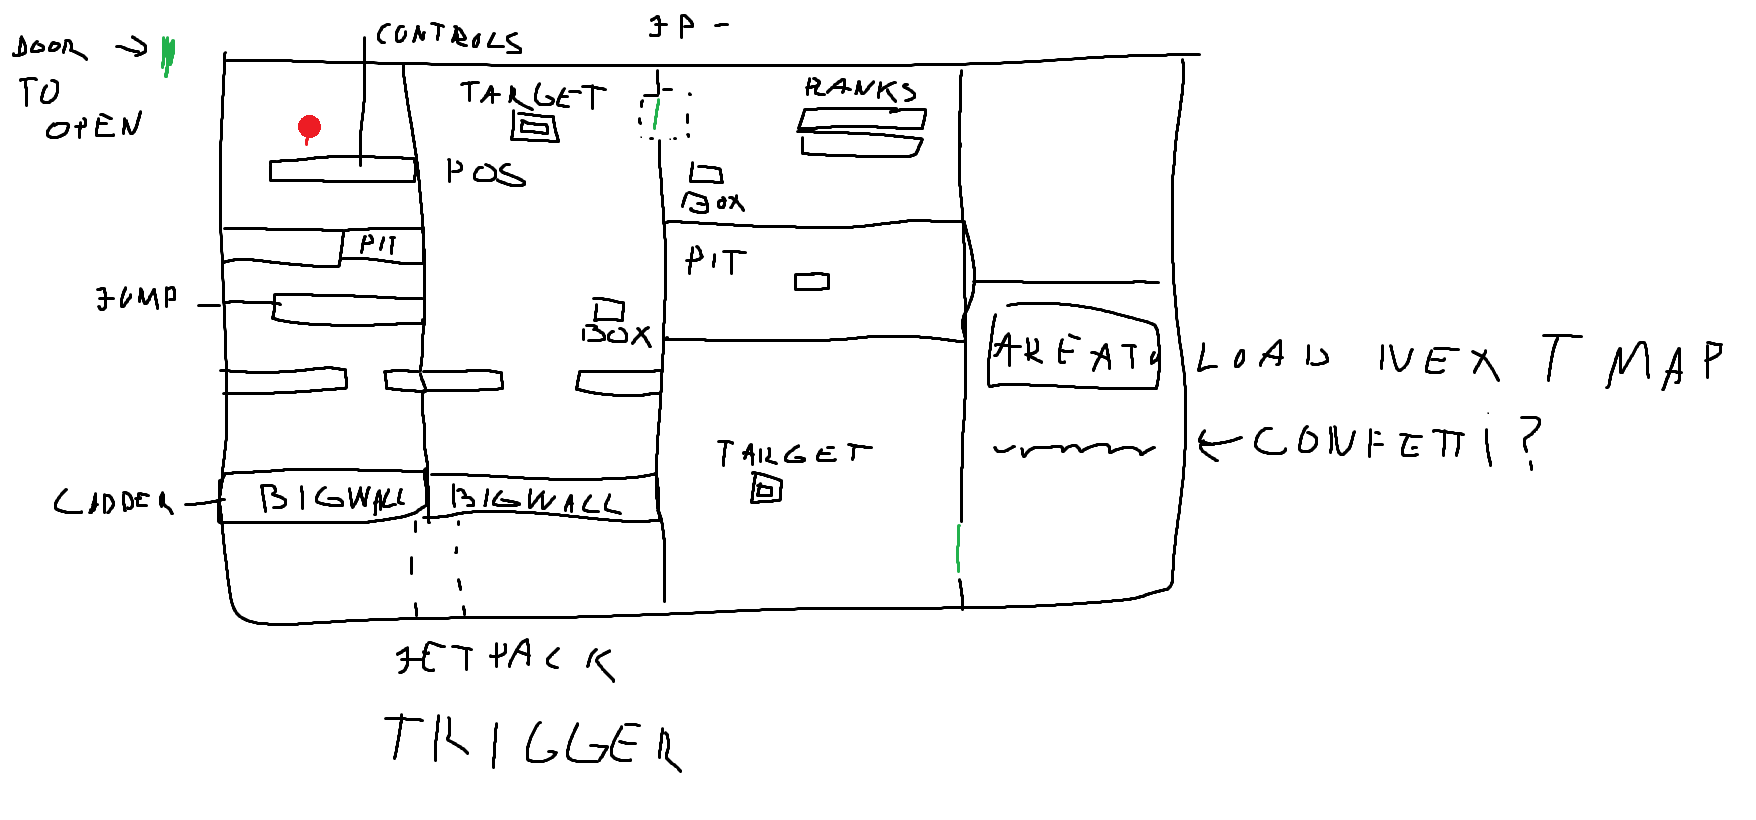 DOOR →
TO
OPEN
CONTROLS
JP -
TARGET
RANKS
POS
BOX
PIT
PIT
JUMP
BOX
LOAD NEXT MAP
TARGET
← CONFETTI?
LADDER
BIGWALL
BIGWALL
JETPACK
TRIGGER